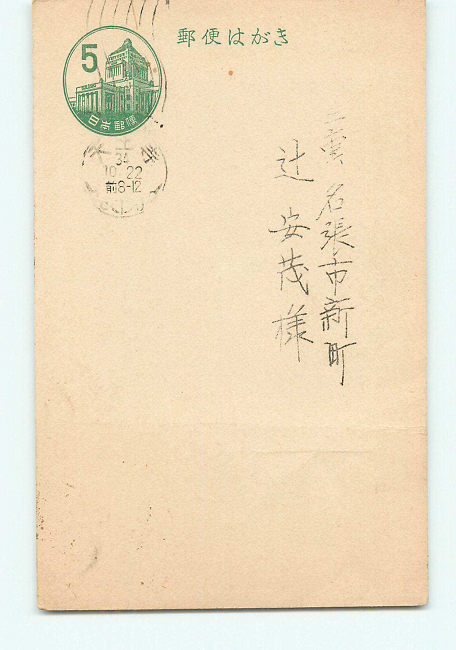 郵便はがき
5
日本郵便
34
10 22
前8-12
三重 名張市新町
辻 安茂様